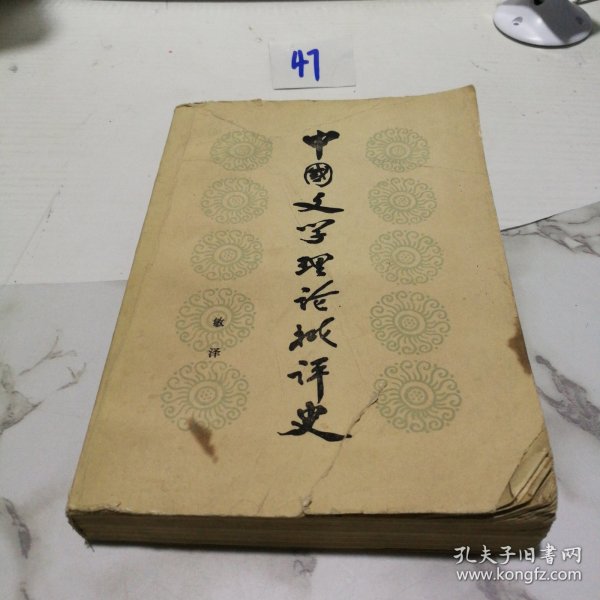 47
中國文学理论批评史
敏泽
孔夫子旧书网
www.kongfz.com